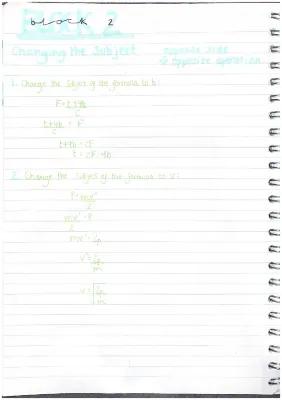 block 2
BLOCK 2
Changing the Subject
opposite side
& opposite operation
1. Change the subject of the formula to t:
F = t+4b
c
t+4b = F
c
t+4b = cF
t = cF - 4b
2. Change the subject of the formula to v:
P = mv²
2
mv² = P
2
mv² = 2P
v² = 2P
m
v = √2P
m